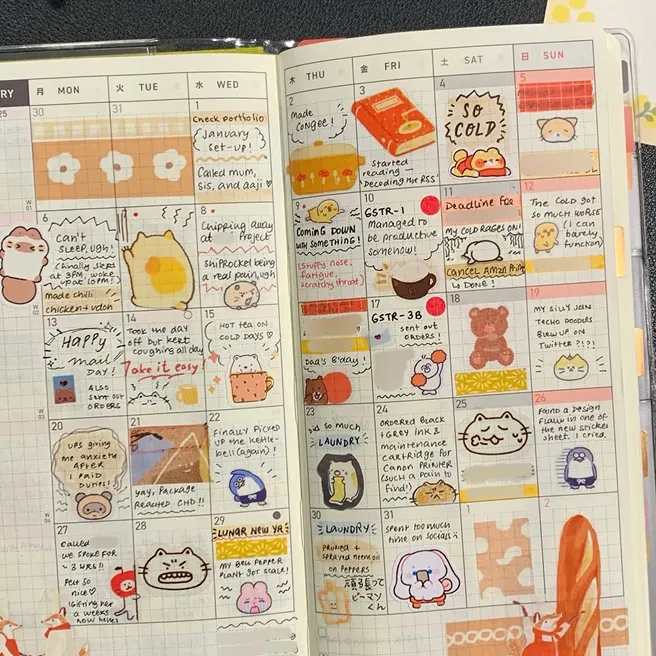 RY
月 MON
火 TUE
水 WED
木 THU
金 FRI
土 SAT
日 SUN
30
31
1
Check portfolio
January
set-up!
Called mum,
sis, and aaji ♡
2
made
congee!
3
Started
reading —
'Decoding the RSS'
4
SO
COLD
5
W
01
6
Can't
sleep, ugh!
(finally slept
at 3PM, woke
up at 10PM!)
made chilli
chicken + udon
7
8
Chipping away
at Project
shiprocket being
a real pain, ugh
9
COMING DOWN
WITH SOMETHING!
(stuffy nose,
fatigue,
scratchy throat)
10
GSTR-1
Managed to
be productive
somehow!
11
Deadline
MY COLD RAGES ON!
CANCEL AMZN Prime
↳ DONE!
12
THE COLD got
so much worse
(I can
barely
function)
W
02
13
HAPPY
mail
DAY!
ALSO
SENT OUT
ORDERS
14
Took the day
off but kept
coughing all day
Take it easy!
15
HOT TEA ON
COLD DAYS ♡
Dad's B'day!
17
GSTR-3B
sent out
ORDERS!
18
19
MY SILLY JAN
TECHO DOODLES
BLEW UP ON
TWITTER ?!?!
W
03
20
UPS giving
me anxiety
AFTER
I PAID
DUTIES!
21
yay, Package
REACHED CHD!!
22
FINALLY PICKED
UP the kettle-
bell (again)!
23
did so much
LAUNDRY
24
ORDERED BLACK
+ GREY INK &
maintenance
cartridge for
Canon PRINTER
(such a pain to
find!)
25
26
FOUND A DESIGN
FLAW in one of
the new sticker
sheet. I cried.
27
Called
WE SPOKE FOR
~ 3 HRS!!
Felt so
nice ♡
28
29
LUNAR NEW YR
MY BELL PEPPER
PLANT GOT SCALE!
30
LAUNDRY
PRUNED +
SPRAYED neem oil
on PEPPERS
頑張って
ピーマン
くん
31
spent too much
time on socials
1
2